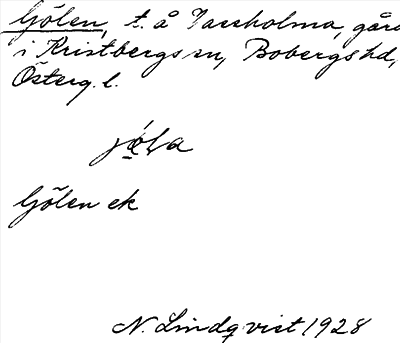 Gölen, t. å Vassholma, gård
i Kristbergs sn, Bobergs hd,
Österg. l.
jö́la
Gölen ek
N. Lindqvist 1928